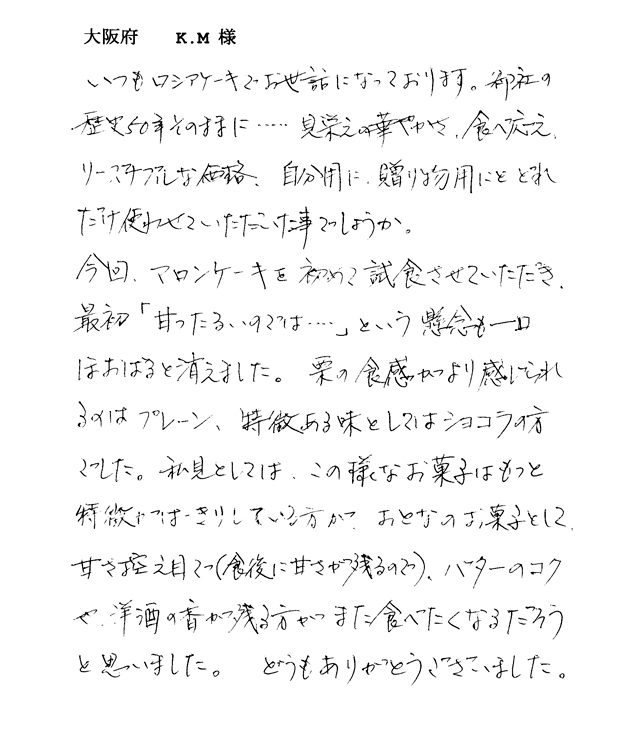 大阪府　　K.M 様
いつもロシアケーキでお世話になっております。御社の
歴史50年そのままに……見栄えの華やかさ、食べ応え、
リーズナブルな価格、自分用に、贈り物用にと どれ
だけ使わせていただいた事でしょうか。
今回、マロンケーキを初めて試食させていただき、
最初「甘ったるいのでは……」という懸念も一口
ほおばると消えました。栗の食感がより感じられ
るのはプレーン、特徴ある味としてはショコラの方
でした。私見としては、この様なお菓子はもっと
特徴がはっきりしている方が、おとなのお菓子として、
甘さ控え目で(食後に甘さが残るので)、バターのコク
や、洋酒の香が残る方がまた食べたくなるだろう
と思いました。　どうもありがとうございました。